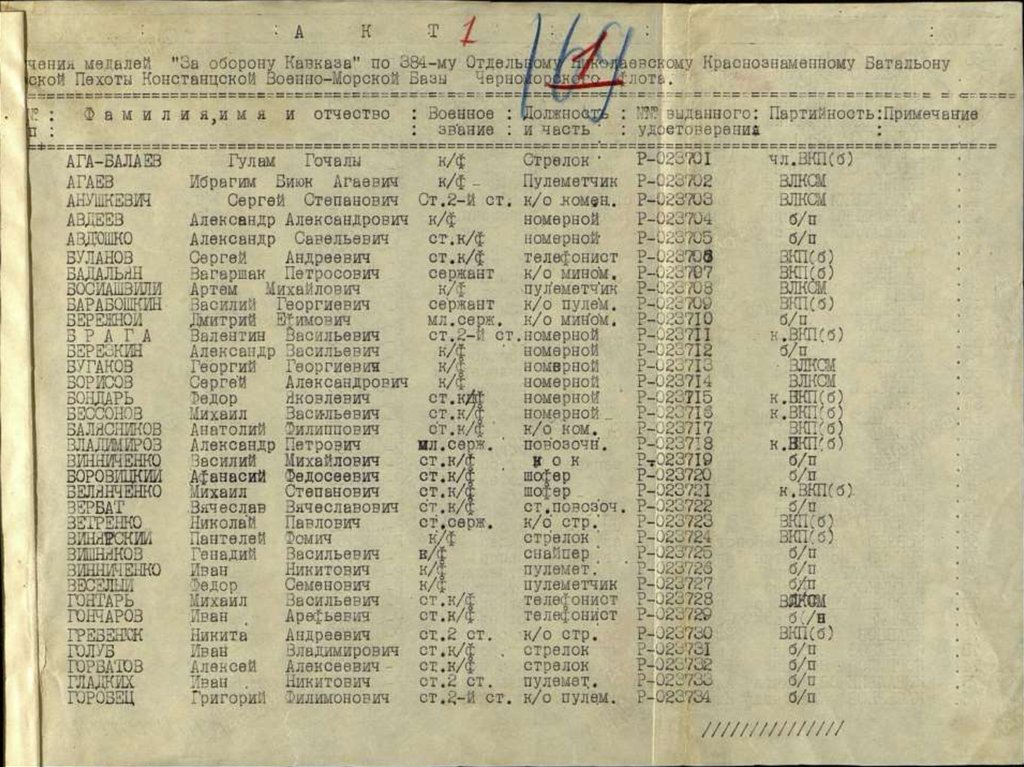 А К Т 1
169
1
чения медалей "За оборону Кавказа" по 384-му Отдельному Николаевскому Краснознаменному Батальону
ской Пехоты Констанцской Военно-Морской Базы Черноморского Флота.
№ : Фамилия,имя и отчество : Военное : Должность : №№ выданного: Партийность:Примечание
п : : звание : и часть : удостоверения : :
АГА-БАЛАЕВ Гулам Гочалы к/ф Стрелок Р-023701 чл.ВКП(б)
АГАЕВ Ибрагим Биюк Агаевич к/ф Пулеметчик Р-023702 ВЛКСМ
АНУШКЕВИЧ Сергей Степанович Ст.2-й ст. к/о комен. Р-023703 ВЛКСМ
АВДЕЕВ Александр Александрович к/ф номерной Р-023704 б/п
АВДЮШКО Александр Савельевич ст.к/ф номерной Р-023705 б/п
БУЛАНОВ Сергей Андреевич ст.к/ф телефонист Р-023706 ВКП(б)
БАДАЛЬЯН Вагаршак Петросович сержант к/о мином. Р-023707 ВКП(б)
БОСИАШВИЛИ Артем Михайлович к/ф пулеметчик Р-023708 ВЛКСМ
БАРАБОШКИН Василий Георгиевич сержант к/о пулем. Р-023709 ВКП(б)
БЕРЕЖНОЙ Дмитрий Ефимович мл.серж. к/о мином. Р-023710 б/п
Б Р А Г А Валентин Васильевич ст.2-й ст.номерной Р-023711 к.ВКП(б)
БЕРЕЗКИН Александр Васильевич к/ф номерной Р-023712 б/п
БУГАКОВ Георгий Георгиевич к/ф номерной Р-023713 ВЛКСМ
БОРИСОВ Сергей Александрович к/ф номерной Р-023714 ВЛКСМ
БОНДАРЬ Федор Яковлевич ст.к/ф номерной Р-023715 к.ВКП(б)
БЕССОНОВ Михаил Васильевич ст.к/ф номерной Р-023716 к.ВКП(б)
БАЛЯСНИКОВ Анатолий Филиппович ст.к/ф к/о ком. Р-023717 ВКП(б)
ВЛАДИМИРОВ Александр Петрович мл.серж. повозочн. Р-023718 к.ВКП(б)
ВИННИЧЕНКО Василий Михайлович ст.к/ф к о к Р-023719 б/п
БОРОВИЦКИЙ Афанасий Федосеевич ст.к/ф шофер Р-023720 б/п
БЕЛЯНЧЕНКО Михаил Степанович ст.к/ф шофер Р-023721 к.ВКП(б)
ВЕРБАТ Вячеслав Вячеславович ст.к/ф ст.повозоч. Р-023722 б/п
ВЕТРЕНКО Николай Павлович ст.серж. к/о стр. Р-023723 ВКП(б)
ВИНЯРСКИЙ Пантелей Фомич к/ф стрелок Р-023724 ВКП(б)
ВИШНЯКОВ Генадий Васильевич к/ф снайпер Р-023725 б/п
ВИННИЧЕНКО Иван Никитович к/ф пулемет. Р-023726 б/п
ВЕСЕЛЫЙ Федор Семенович к/ф пулеметчик Р-023727 б/п
ГОНТАРЬ Михаил Васильевич ст.к/ф телефонист Р-023728 ВЛКСМ
ГОНЧАРОВ Иван Арефьевич ст.к/ф телефонист Р-023729 б(/п
ГРЕБЕНЮК Никита Андреевич ст.2 ст. к/о стр. Р-023730 ВКП(б)
ГОЛУБ Иван Владимирович ст.к/ф стрелок Р-023731 б/п
ГОРБАТОВ Алексей Алексеевич ст.к/ф стрелок Р-023732 б/п
ГЛАДКИХ Иван Никитович ст.2 ст. пулемет. Р-023733 б/п
ГОРОБЕЦ Григорий Филимонович ст.2-й ст. к/о пулем. Р-023734 б/п
///////////////